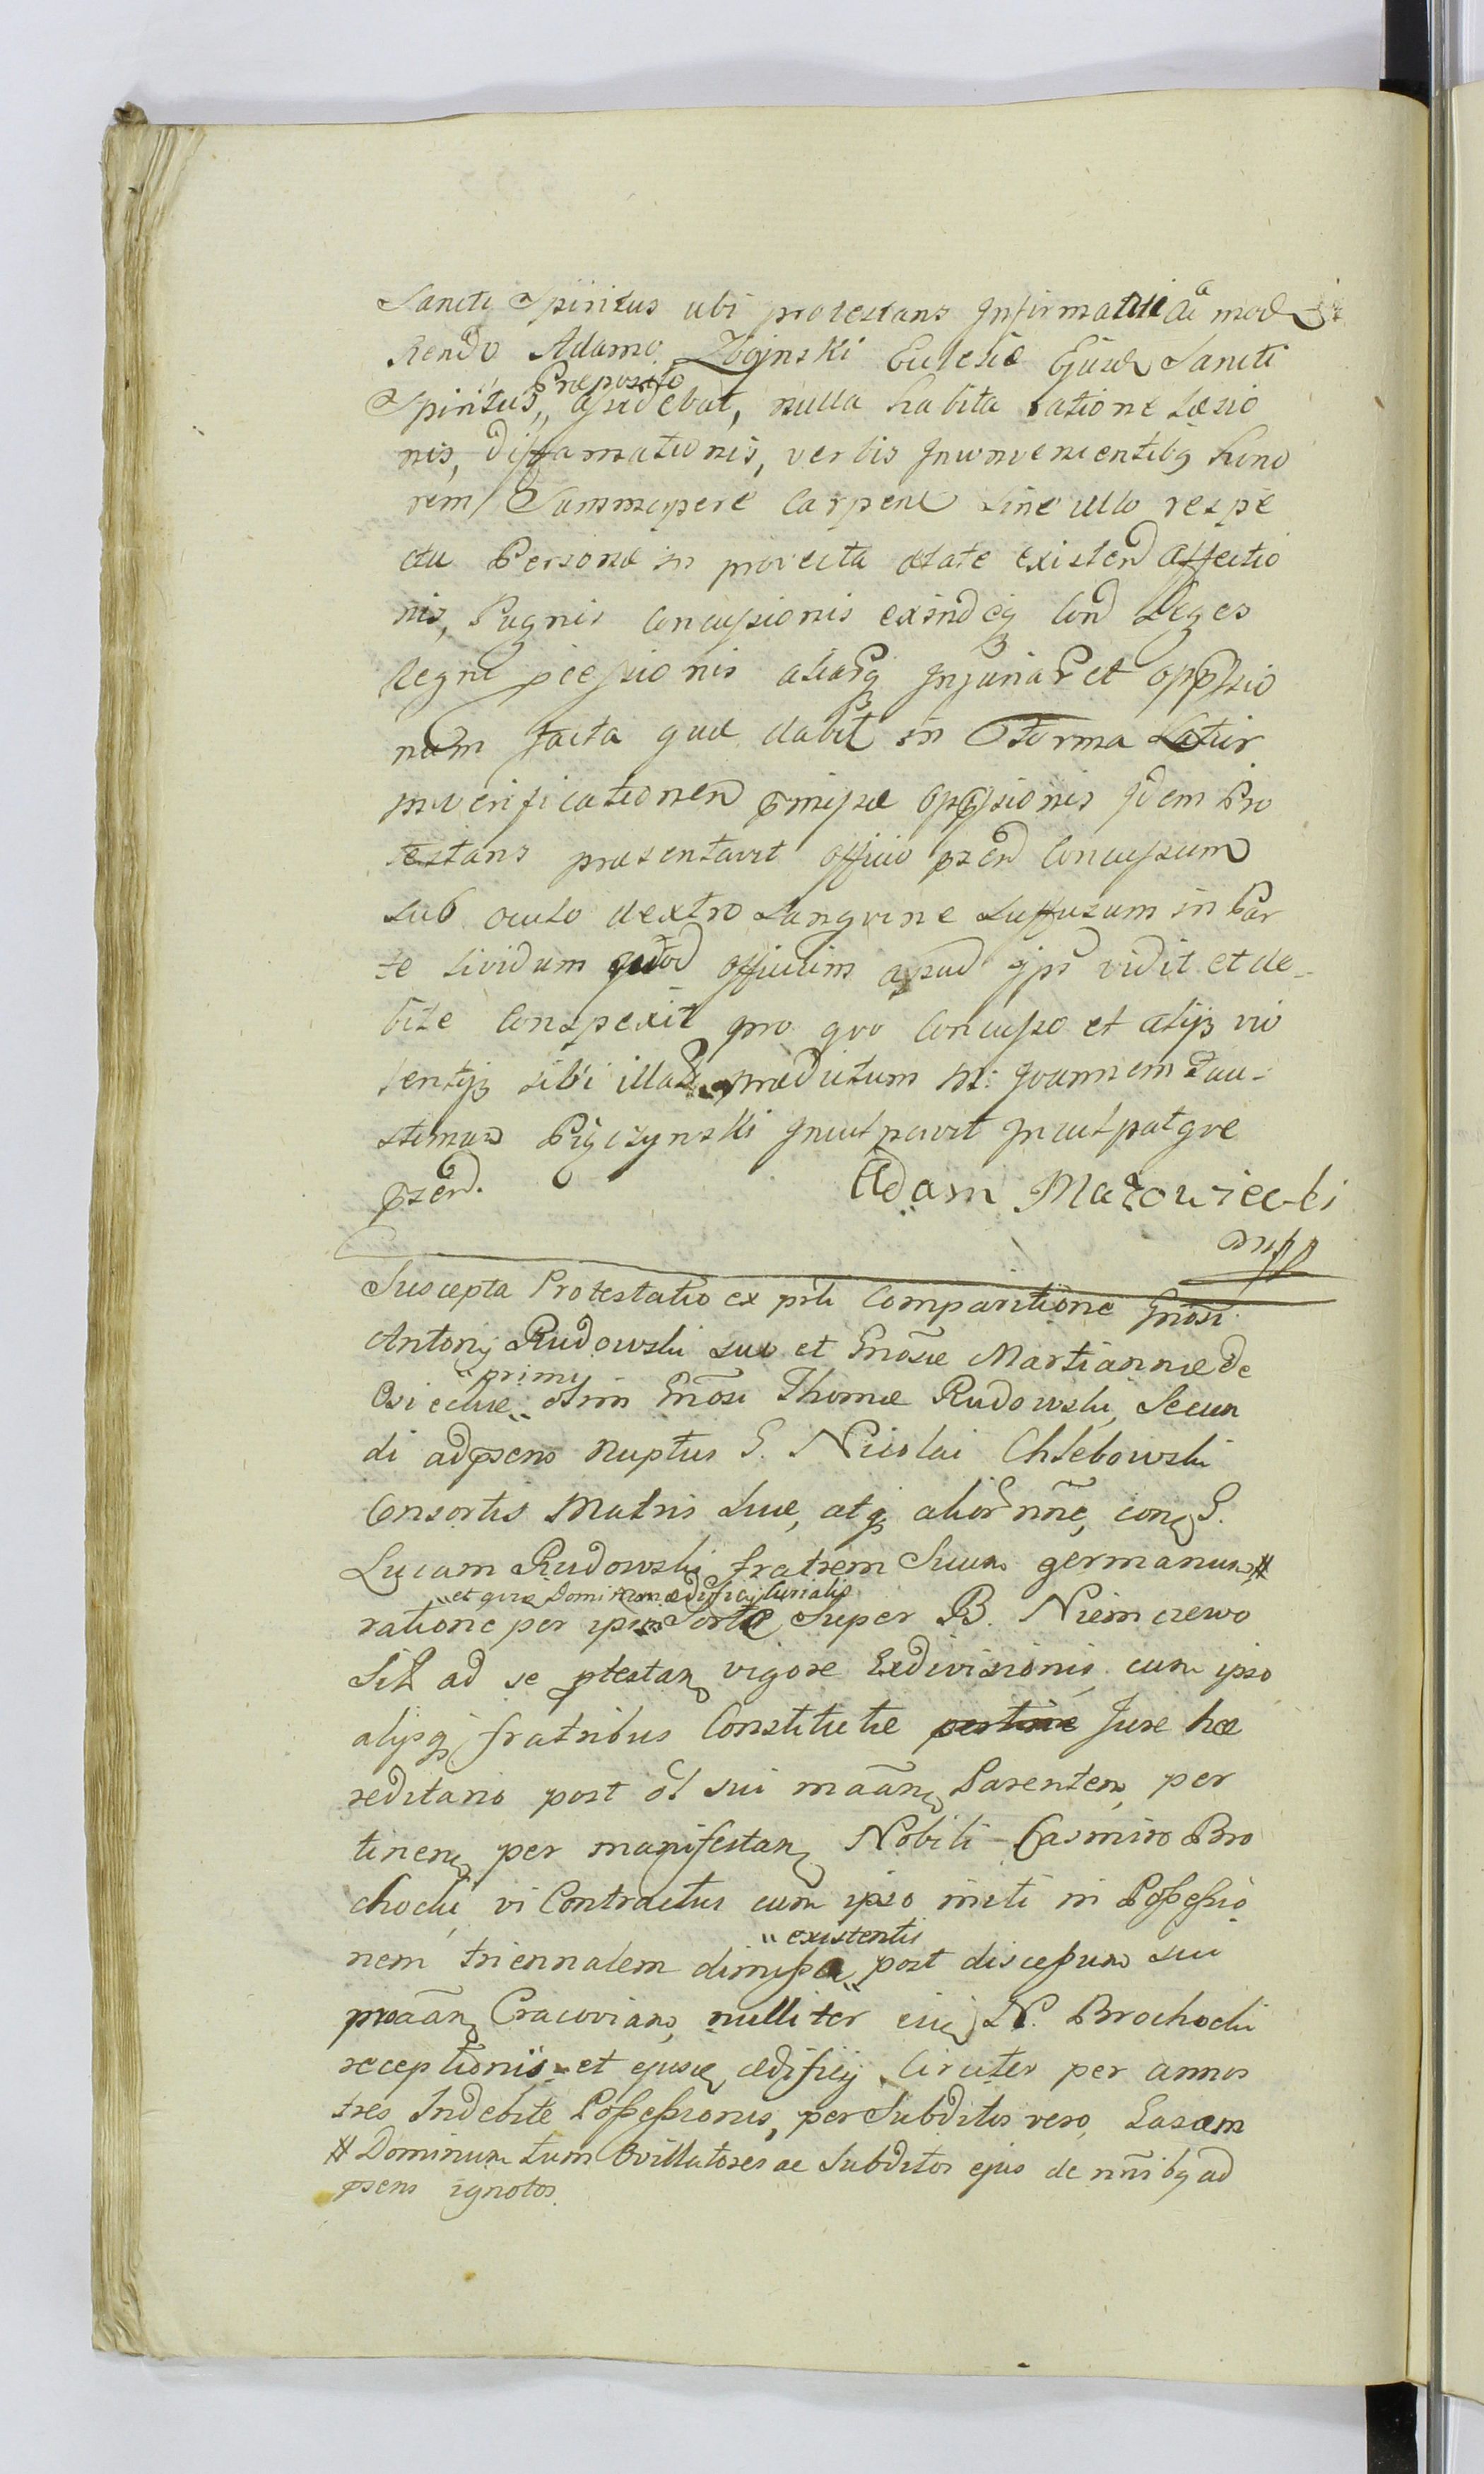 Sancti Spiritus ubi protestans Infirmatus a mod
Rendo Adamo Zboinski Eclesiæ Ejusd Sancti
Præposito
Spiritus,, assidebat, nulla habita ratione Læsio
nis, diffamationis, verbis Inconvenientibq hono
rem Summopere Carpend sine ullo respe
ctu Personæ in provecta ætate existend affectio
nis, Pugnis Concussionis exindeq Cond Leges
Regni pcessionis aliarq Injuriar et oppssio
num facta quæ dabit in Forma Latior
inverificationem pmissæ oppssionis Idem Pro
testans præsentavit officio pzen Concussum
sub oculo dextro sangvine suffusum in Par
te lividum quod officium apud ips vidit et de-
bite Conspexit pro quo Concusso et alijs vio
lentijs sibi illat prædictum M: Joannem Fau-
stinum Pigczynski Inculpavit Inculpatqve
pzen.
Adam Mazowiecki
mpp
Suscepta Protestatio ex prli Comparitione Gnosi
Antonij Rudowski suo et Gnosæ Martiannæ de
"primi
Osieckie,, olim Gnosi Thomæ Rudowski, Secun
di adpsens nuptus G. Nicolai Chlebowski
Consortis Matris suæ, atq alior nne, con G.
Lucam Rudowski fratrem Suum germanum #
"et qvis Dominum ædificij Curialis
ratione per ipsum Sortæ Super B. Niemczewo
Sit ad se ptestan vigore Exdivisionis cum ipso
alijsq fratribus Constitutæ pertine Jure hæ
reditario post ol sui maan Parentem, per
tinen per manifestan Nobili Casimiro Bro
chocki vi Contractus cum ipso initi in Possessio
"existentis
nem triennalem dimissa,, post discessum sui
maan Cracoviam, nulliter N. Brochocki
receptionis et ejusd ædificij Circiter per annos
tres Indebite Possessionis, per Subditos vero
# Dominum tum Ovillatores ac Subditos ejus de nnibq ad
psens ignotos.